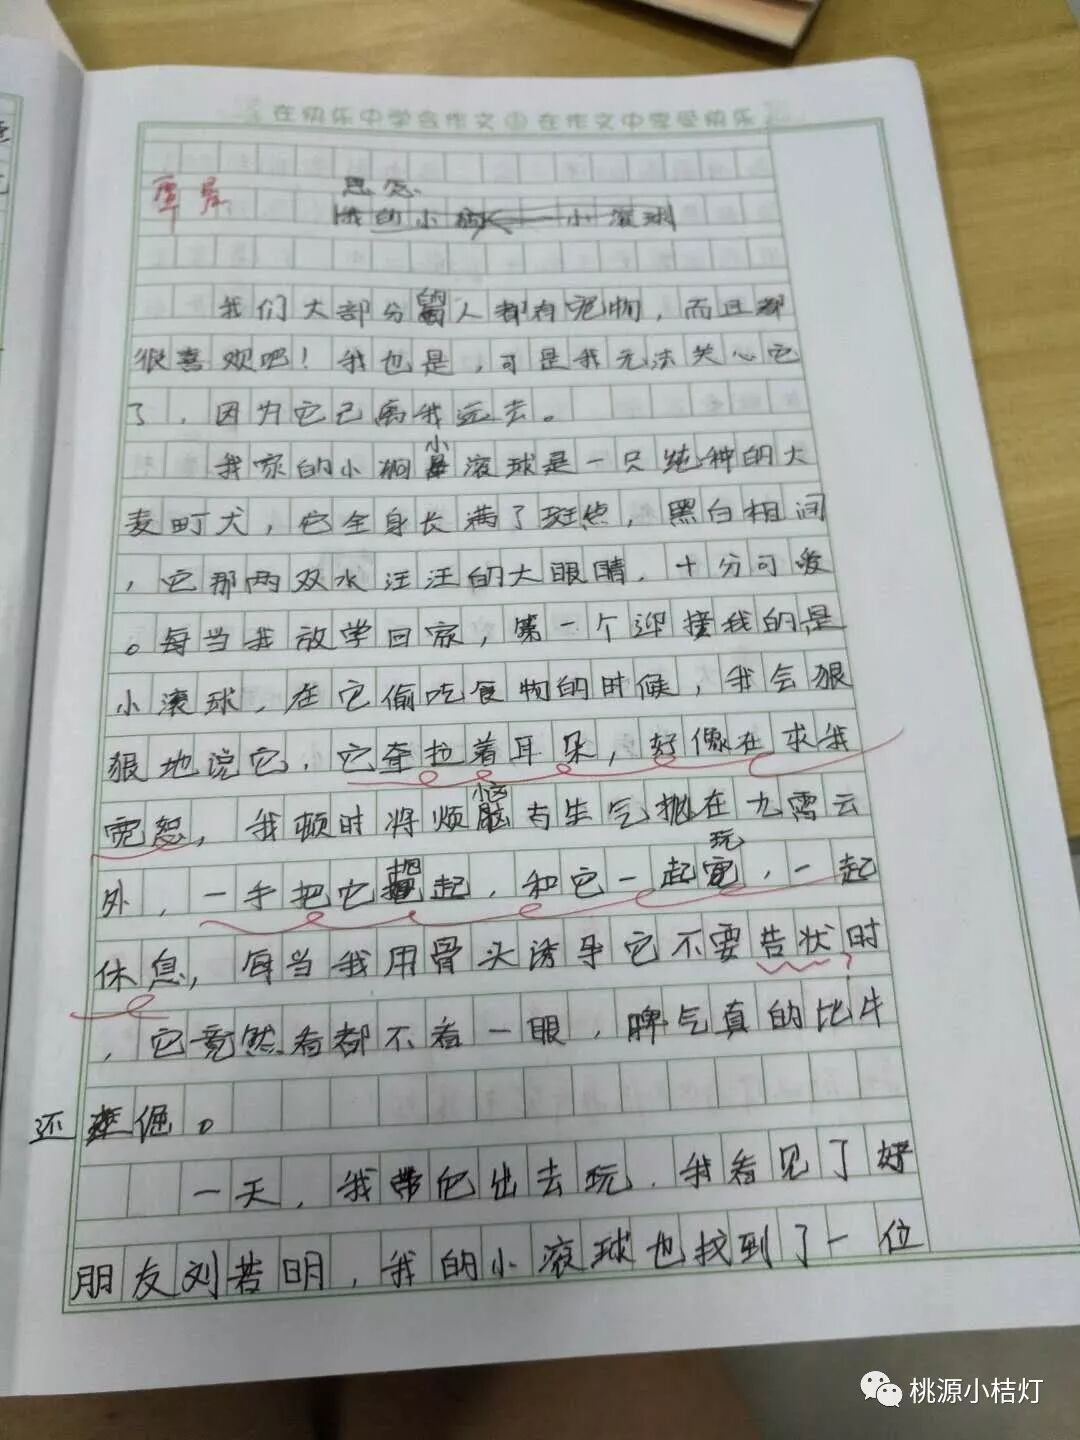 在快乐中学会作文 在作文中享受快乐
思念
我的小 小滚球
我们大部分的人都有宠物，而且都
很喜欢吧！我也是，可是我无法关心它
了，因为它己离我远去。
我家的小 小滚球是一只纯种的大
麦町犬，它全身长满了斑点，黑白相间
，它那两双水汪汪的大眼睛，十分可爱
。每当我放学回家，第一个迎接我的是
小滚球，在它偷吃食物的时候，我会狠
狠地说它，它牵拉着耳朵，好像在求我
宽恕，我顿时将烦恼与生气抛在九霄云
外，一手把它抱起，和它一起玩，一起
休息，每当我用骨头诱乎它不要告状时
，它竟然看都不看一眼，脾气真的比牛
还倔。
一天，我带它出去玩，我看见了好
朋友刘若明，我的小滚球也找到了一位
桃源小桔灯